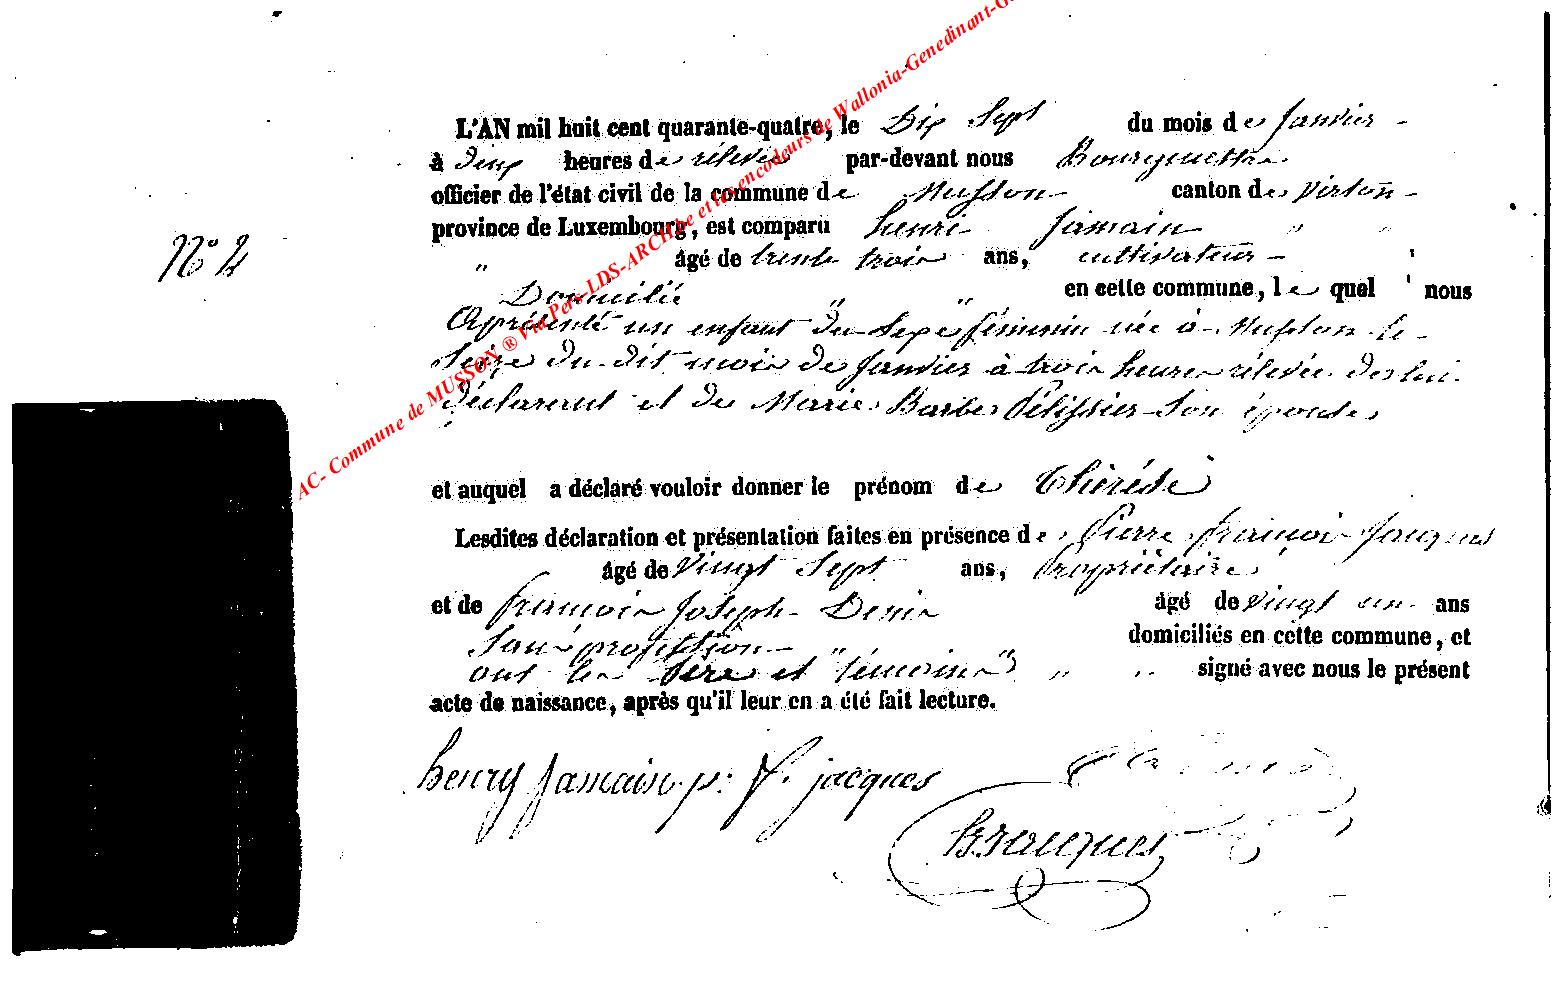 AC- Commune de MUSSON ® Via Pers-LDS-ARCHbe et les encodeurs de Wallonia-Genedinant-G
L'AN mil huit cent quarante-quatre, le Dix Sept du mois de Janvier -
à deux heures de rélevée par-devant nous Bourguemestre
officier de l'état civil de la commune de Musson canton de Virton -
province de Luxembourg, est comparu henri Jamain " "
N° 2
" âgé de trente trois ans, cultivateur -
Domicilié " " en cette commune, le quel nous
a présenté un enfant du Sexe féminin née à Musson le
Seize du dit mois de Janvier à trois heures rélevée de lui
déclarant et de Marie Barbe Pélissier Son épouse
et auquel a déclaré vouloir donner le prénom de Thérése
Lesdites déclaration et présentation faites en présence de Pierre françois Jacques
âgé de Vingt Sept ans, Propriétaire
et de françois Joseph Denis âgé de vingt un ans
Sans profession domiciliés en cette commune, et
ont les Père et témoins " " signé avec nous le présent
acte de naissance, après qu'il leur en a été fait lecture.
henry Jamain p. f. jacques